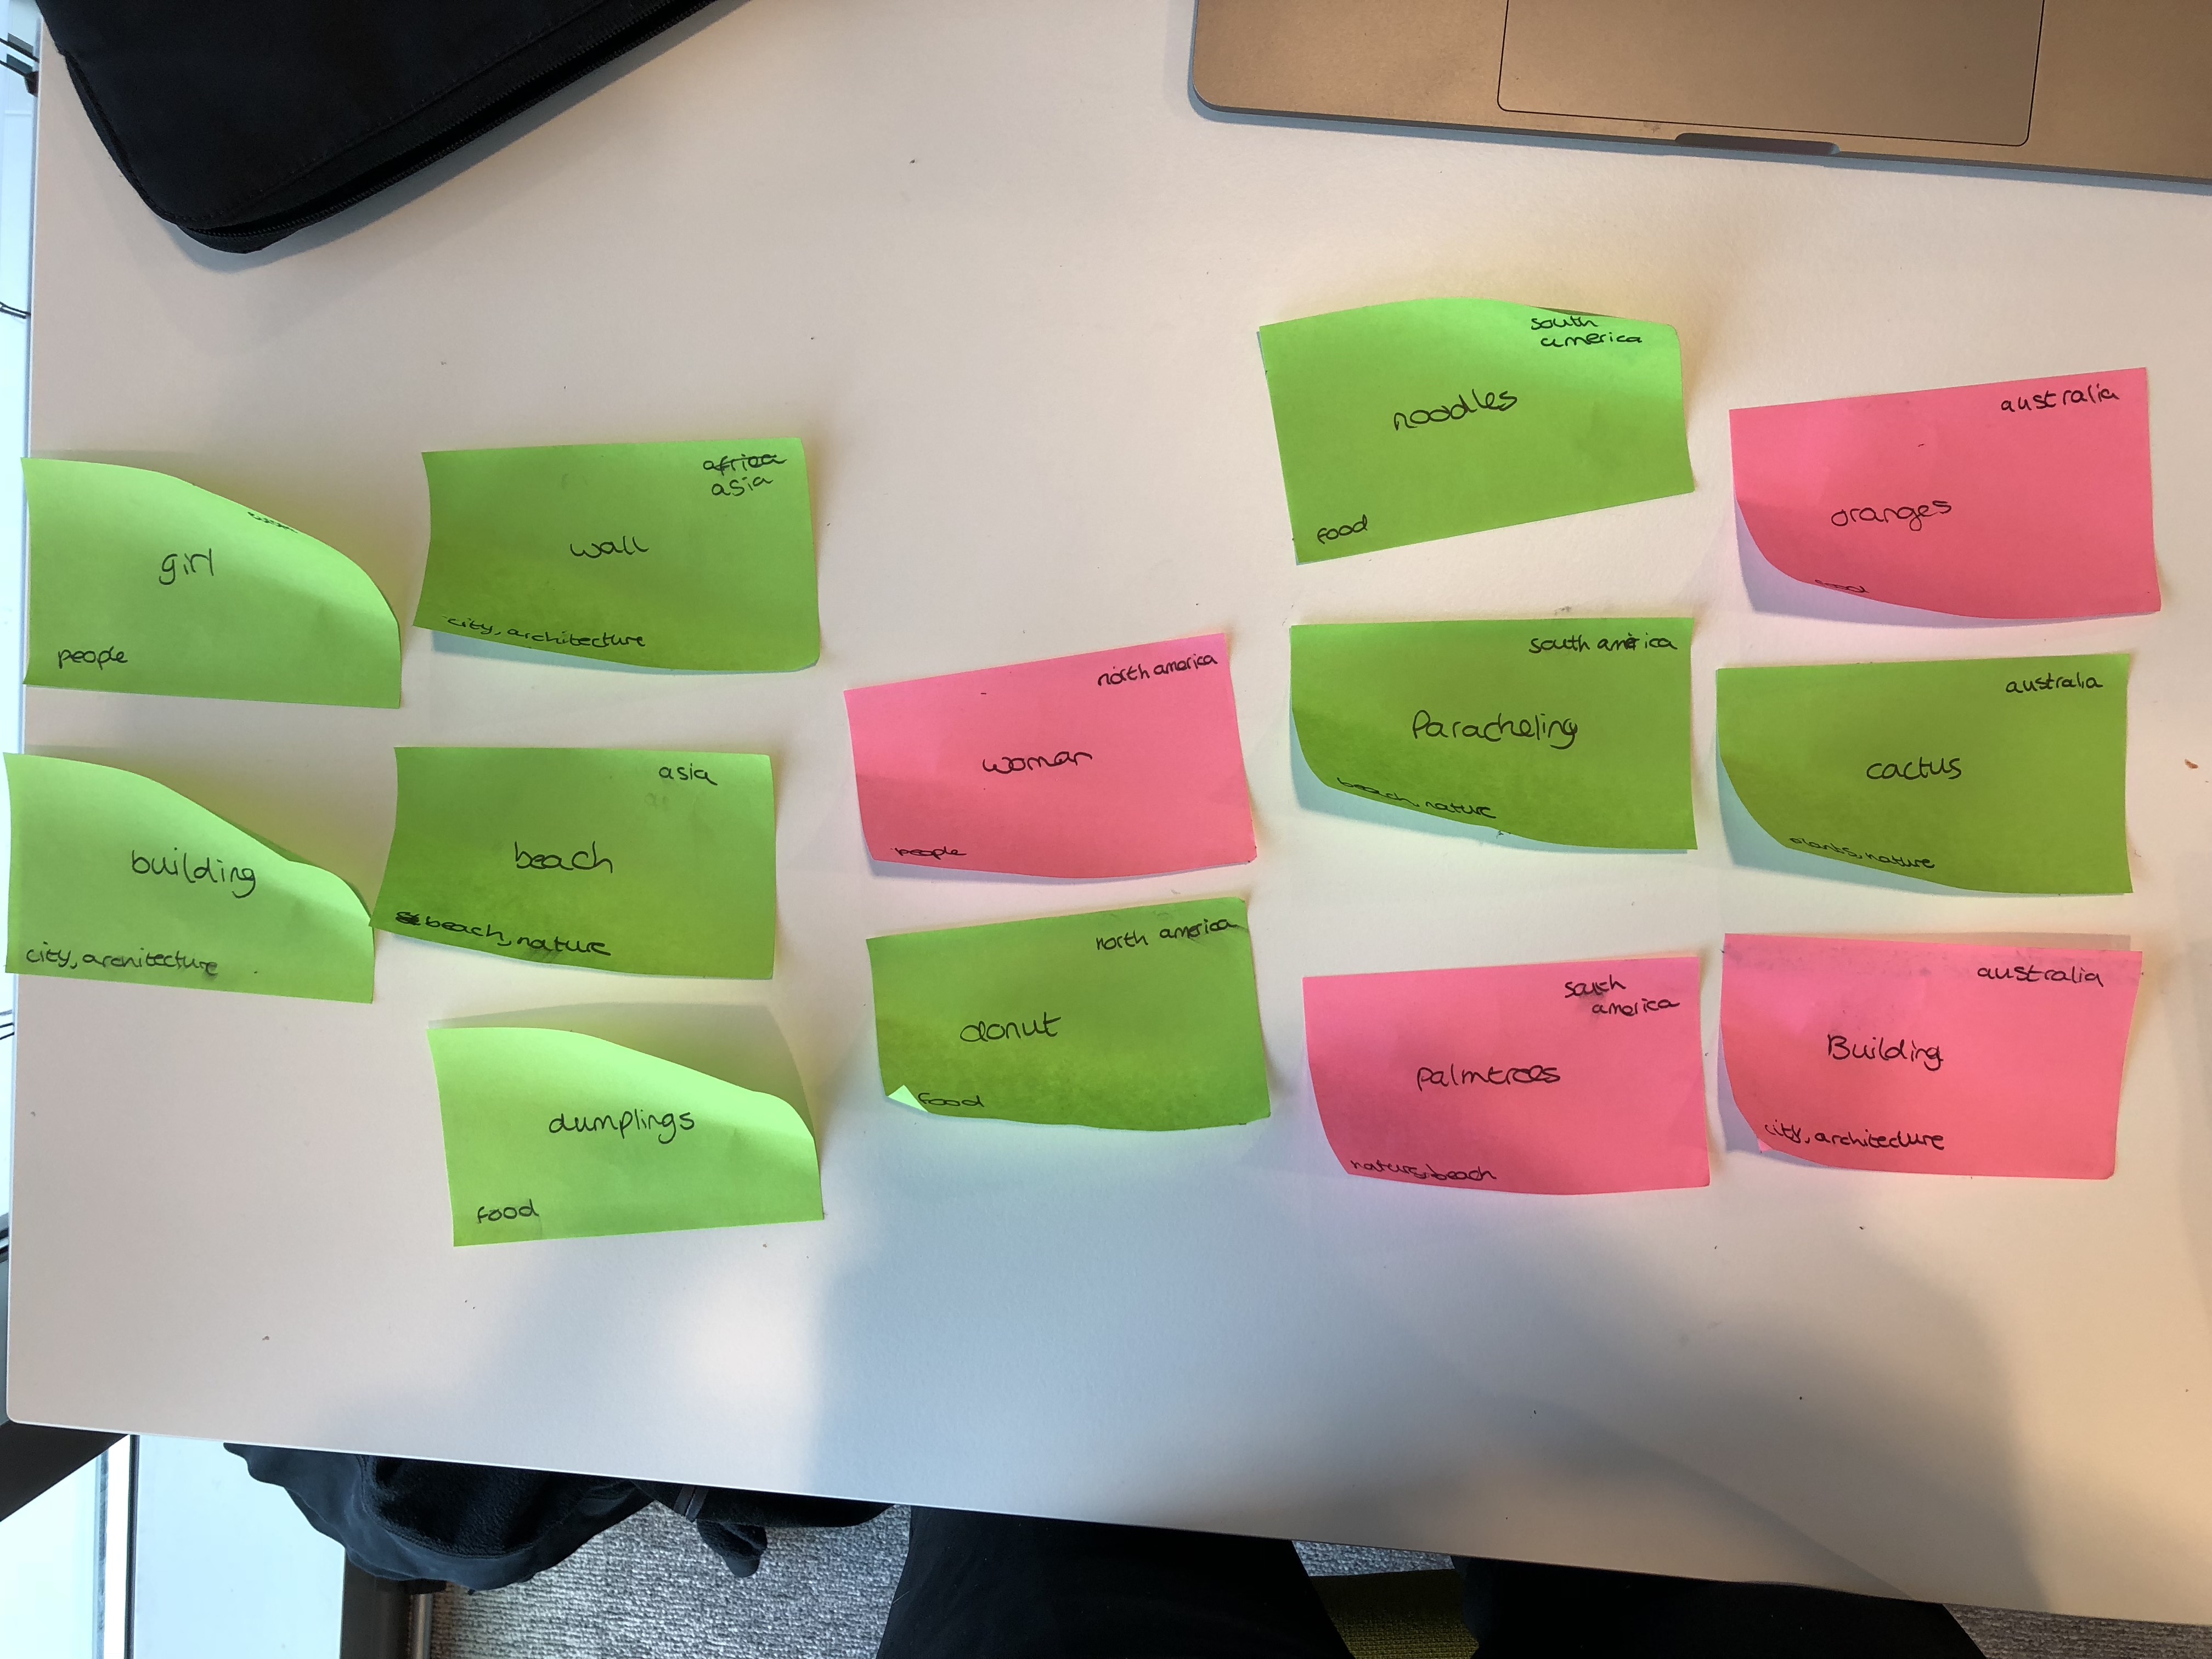 girl
people
building
city, architecture
africa
asia
wall
city, architecture
asia
beach
beach, nature
dumplings
food
north america
woman
people
north america
donut
food
south
america
noodles
food
south america
Paracheling
beach, nature
south
america
palmtrees
nature, beach
australia
oranges
food
australia
cactus
plants, nature
australia
Building
city, architecture